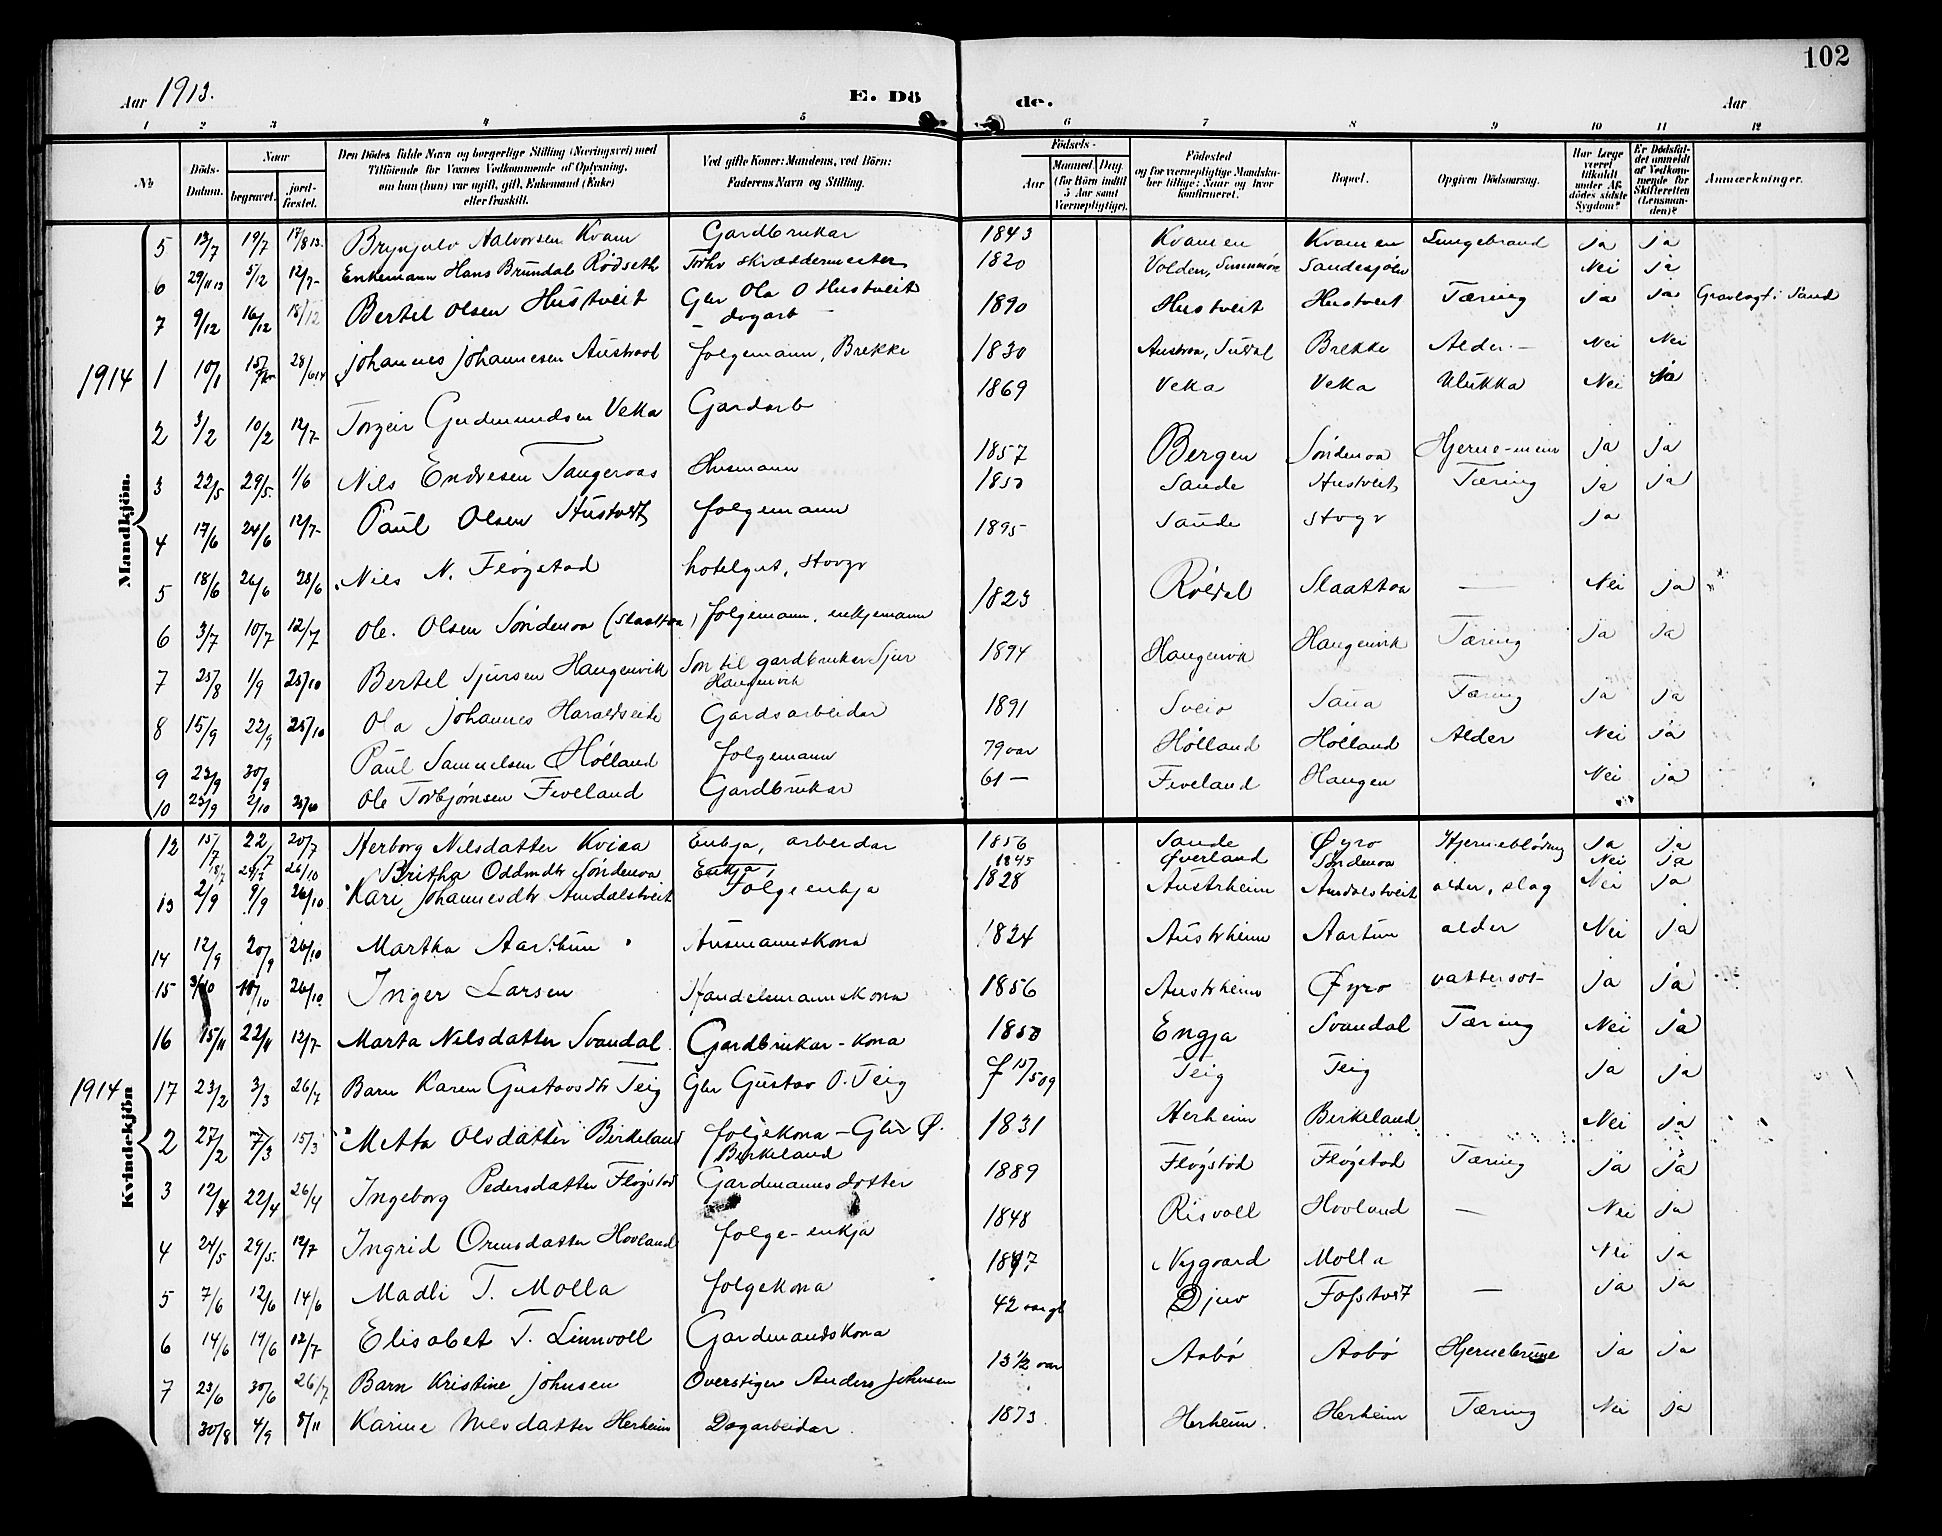 102
Aar 1913. E. Dö de. Aar
1 2 3 4 5 6 7 8 9 10 11 12
No Döds-Datum. Naar begravet. jord-fæstet. Den Dödes fulde Navn og borgerlige Stilling (Næringsvei) med Tilföiende for Voxnes Vedkommende af Oplysning, om han (hun) var ugift, gift, Enkemand (Enke) eller fraskilt. Ved gifte Koner: Mandens, ved Börn: Faderens Navn og Stilling. Födsels- Aar Maaned Dag. (for Börn indtil 5 Aar samt Værnepligtige). Födested og for værnepligtige Mandskaber tillige: Naar og hvor konfirmeret. Bopæl. Opgiven Dödsaarsag. Har Læge været tilkaldt under Afdödes sidste Sygdom? Er Dödsfaldet anmeldt af Vedkommende for Skifteretten (Lensmanden)? Anmærkninger.
Mandkjön.
5 13/7 19/7 17/8 13. Brynjulv Aalvorsen Kvam Gardbrukar 1843 Kvamen Kvamen Lungebrand ja ja
6 29/11 13 5/12 12/7- Enkemann Hans Brundal Rödseth Forhv skræddermester 1820 Volden, Sunnmöre Sandesjöen Nei ja
7 9/12 16/12 18/12 Bertel Olsen Hustveit Gbr Ola O Hustveit dagarb 1890 Hustveit Hustveit Tæring ja ja Gravlagt i Sand
1914 1 10/1 28/6 14 Johannes Johannesen Austraat folgemann, Brekke 1830 Suldal Brekke Alder - Nei Nei
2 3/2 10/2 12/7- Torgeir Gudmundsen Veka Gardarb 1869 Veka Veka Ulukka Nei ja
3 22/5 29/5. 1/6 Nils Endresen Tangeraas Husmann 1857 Bergen Söndenaa ja ja
4 17/6 24/6 12/7- Paul Olsen Hustveit folgemann 1850 Saude Hustveit Tæring ja ja
5 18/6 26/6 28/6 Nils N. Flögstad hotelgut, Stovgr 1895 Saude Stovgr ja
6 3/7 10/7 12/7 Ole. Olsen Söndenaa (Slaattaa) folgemann, enkjemann 1823 Röldal Slaattaa — Nei ja
7 25/8 1/9 25/10 Bertel Sjursen Haugenvik Son til gardbrukar Sjur Haugenvik 1894 Haugenvik Haugenvik Tæring ja ja
8 15/9 22/9 25/10 Ola Johannes Haraldseide Gardsarbeidar 1891 Sveio Saua Tæring ja ja
9 23/9 30/9 Paul Samuelsen Hölland folgemann 79 aar Hölland Hölland Alder Nei ja
10 25/9 2/10 25/10 Ole Torbjörnsen Fiveland Gardbrukar 61 — Fiveland Haugen Nei ja
Kvindekjön
12 15/7 22/7 20/7 Herborg Nilsdatter Kviaa Enkja, arbeidar 1856 Saude Øyro Hjerneblödning Ja ja
18/7 26/10 Britha Oddmdtr Söndenaa Enkja, 1845 Øverland Söndenaa Nei ja
13 2/9 9/9 26/10 Kari Johannesdtr Amdalstveit Folgeenkja 1828 Austrheim Amdalstveit alder, slag Nei ja
14 12/9 20/9 26/10 Martha Aarthun Husmannskona 1824 Austrheim Aartun alder Nei ja
15 3/10 10/10 26/10 Inger Larsen Handelsmannskona 1856 Austrheim Øyro vattersot - ja ja
16 15/11 22/11 12/7- Marta Nilsdatter Svandal Gardbrukar-kona 1850 Engja Svandal Tæring Nei ja
1914 17 23/2 3/3 26/7 Barn Karen Gustavsdtr Teig Gbr Gustav O. Teig f 15/5 09 Teig Teig ja ja
2 27/2 7/3 15/3 Metta Olsdatter Birkeland folgekona - Gbr Ø. Birkeland 1831 Herheim Birkeland Nei ja
3 12/4 22/4 26/4 Ingeborg Pedersdatter Flögstad Gardmannsdotter 1889 Flögstad Flögstad Tæring ja ja
4 24/5 29/5. 12/7 Ingrid Ormsdatter Hovland folge-enkja 1848 Risvoll Hovland — Nei ja
5 7/6 12/6 14/6 Madli T. Molla folgekona 1847 Nygaard Molla Nei ja
6 14/6 19/6 12/7 Elisabet T. Linnvoll Gardmandskona 42 aar gl Djuv — ja ja
7 23/6 30/6 26/7 Barn Kristine Johnsen Overstiger Anders Johnsen 13 1/2 aar Aabö Aabö ja ja
30/8 4/9 8/11 Karine Nilsdatter Herheim Dagarbeidar 1873 Herheim. Herheim Tæring Nei ja